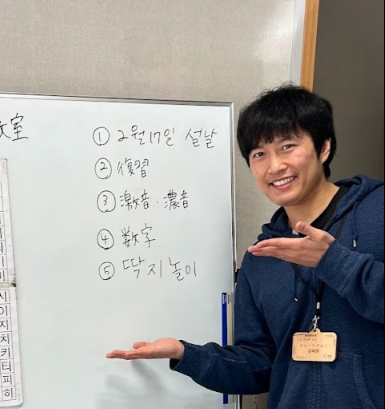 教室
① 2월 17일 설날
② 復習
③ 激音・濃音
④ 数字
⑤ 딱지놀이
시
이
지
치
키
티
피
히